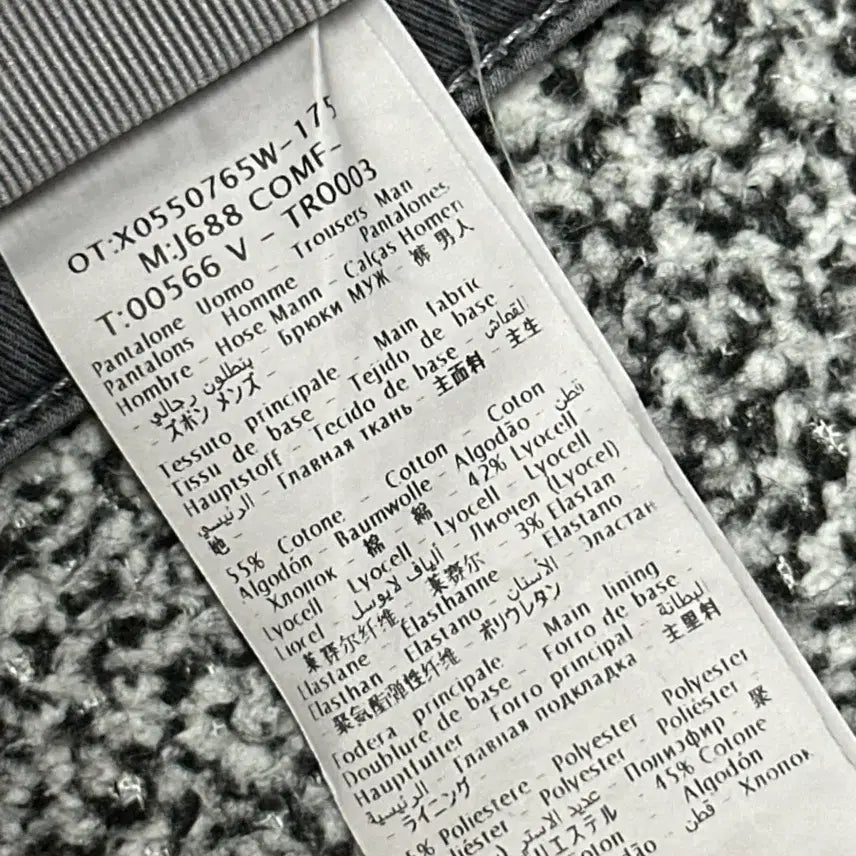 OT:X0550765W-175
M:J688 COMF-
T:00566 V - TRO003
Pantalone Uomo - Trousers Man -
Pantalons Homme - Pantalones
Hombre - Hose Mann - Calças Homen
بنطلون رجالي - Брюки МУЖ - 裤 男人
ズボン メンズ -
Tessuto principale - Main fabric
Tissu de base - Tejido de base -
Hauptstoff - Tecido de base - القماش
الرئيسي - Главная ткань - 主面料 - 主生
地 -
55% Cotone - Cotton - Coton
Algodón - Baumwolle - Algodão - قطن
Хлопок - 棉 - 綿 - 42% Lyocell -
Lyocell - Lyocell - Lyocell - Lyocell
Liocel - ألياف لايوسل - Лиочел (Lyocel) -
莱赛尔纤维 - 莱赛尔 - 3% Elastan -
Elastane - Élasthanne - Elastano -
Elasthan - Elastano - الاستان - Эластан
聚氨酯弹性纤维 - ポリウレタン
Fodera principale - Main lining
Doublure de base - Forro de base -
Hauptfutter - Forro principal - البطانة
الرئيسية - Главная подкладка - 主里料
- ライニング -
5% Poliestere - Polyester - Polyester
Polyester - Poliéster -
عديد الاستر - Полиэфир - 聚
リエステル - 45% Cotone
Algodón
قطن - Хлопок